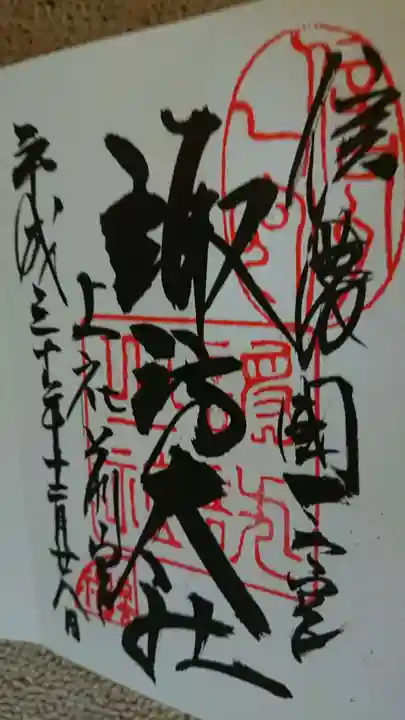 信濃國一之宮
諏訪大社
上社前宮
平成三十年十二月廿八日